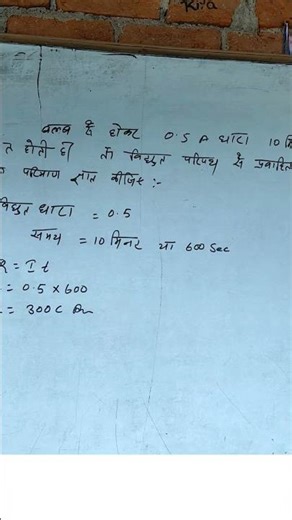 Rita
बल्ब से होकर 0.5 A धारा 10 मि
त होती हो तो विद्युत परिपथ से प्रवाहित
परिमाण ज्ञात कीजिए :-
विद्युत धारा = 0.5
समय = 10 मिनट या 600 Sec
= I t
= 0.5 × 600
= 300 C Ans